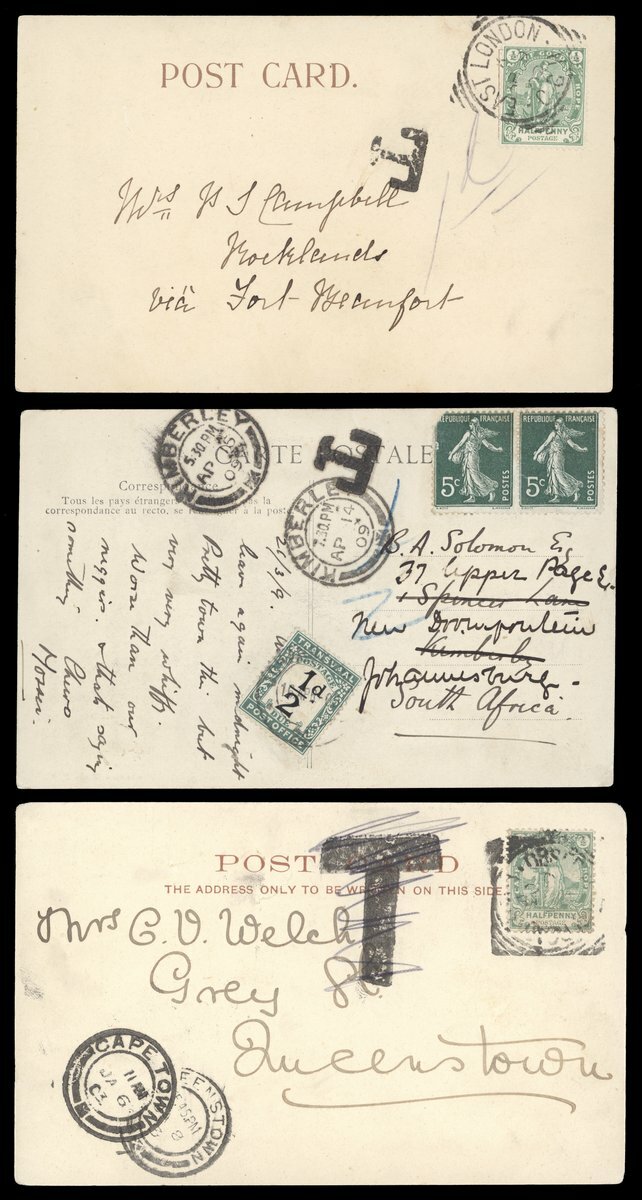 POST CARD.
EAST LONDON
HALFPENNY
POSTAGE
T
Mrs H S Campbell
Rocklands
viâ Fort-Beaufort
CARTE POSTALE
Correspondance
Tous les pays étrangers la
correspondance au recto, se à la poste
KIMBERLEY
5.30 PM
AP
09
T
KIMBERLEY
7.30 PM
AP 14
09
REPUBLIQUE FRANÇAISE
5c
POSTES
REPUBLIQUE FRANÇAISE
5c
POSTES
B. A. Solomon Esq
37 Upper Page St.
1 Spencer Lane
New Doornfontein
Kimberley
Johannesburg
South Africa.
21/3/9.
leave again midnight
Pretty town this but
very very whiffy.
Worse than our
niggers. & thats saying
something
Cheero
TRANSVAAL
POSTAGE DUE
1/2d
POST OFFICE
POST CARD
THE ADDRESS ONLY TO BE WRITTEN ON THIS SIDE.
T
HALFPENNY
POSTAGE
Mrs C. V. Welch
Grey St
Queenstown
CAPE TOWN
11 AM
JA 6
03
QUEENSTOWN